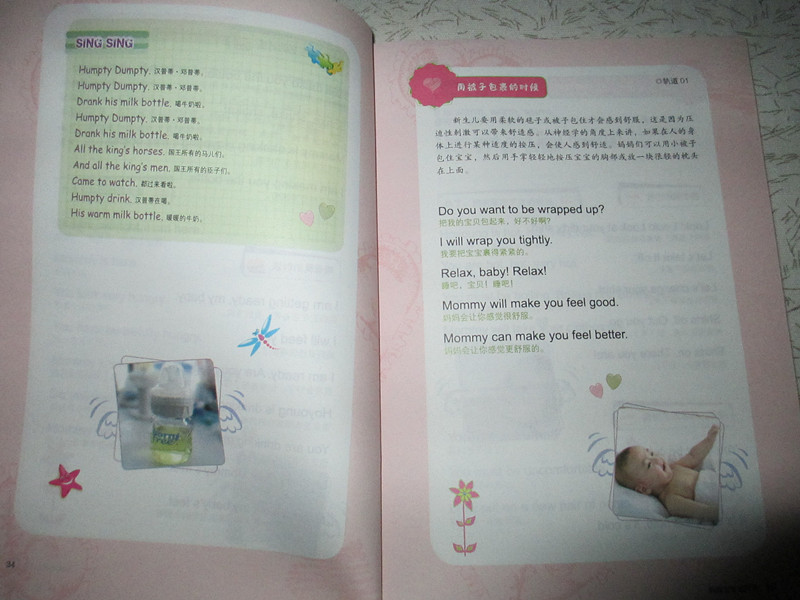 SING SING
Humpty Dumpty. 汉普蒂·邓普蒂。
Humpty Dumpty. 汉普蒂·邓普蒂。
Drank his milk bottle. 喝牛奶啦。
Humpty Dumpty. 汉普蒂·邓普蒂。
Drank his milk bottle. 喝牛奶啦。
All the king's horses. 国王所有的马儿们。
And all the king's men. 国王所有的臣子们。
Came to watch. 都过来看啦。
Humpty drink. 汉普蒂在喝。
His warm milk bottle. 暖暖的牛奶。
94
用被子包裹的时候
◎轨道 01
新生儿要用柔软的毯子或被子包住才会感到舒服，这是因为压
迫性刺激可以带来舒适感。从神经学的角度上来讲，如果在人的身
体上进行某种适度的按压，会使人感到舒适。妈妈们可以用小被子
包住宝宝，然后用手掌轻轻地按压宝宝的胸部或放一块很轻的枕头
在上面。
Do you want to be wrapped up?
把我的宝贝包起来，好不好啊？
I will wrap you tightly.
我要把宝宝裹得紧紧的。
Relax, baby! Relax!
睡吧，宝贝！睡吧！
Mommy will make you feel good.
妈妈会让你感觉很舒服。
Mommy can make you feel better.
妈妈会让你感觉更舒服的。